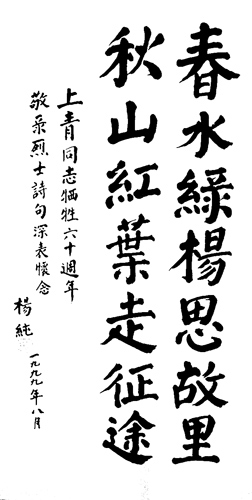 春水綠楊思故里
秋山紅葉走征途
上青同志牺牲六十週年
敬录烈士詩句深表懷念
楊純 一九九九年八月